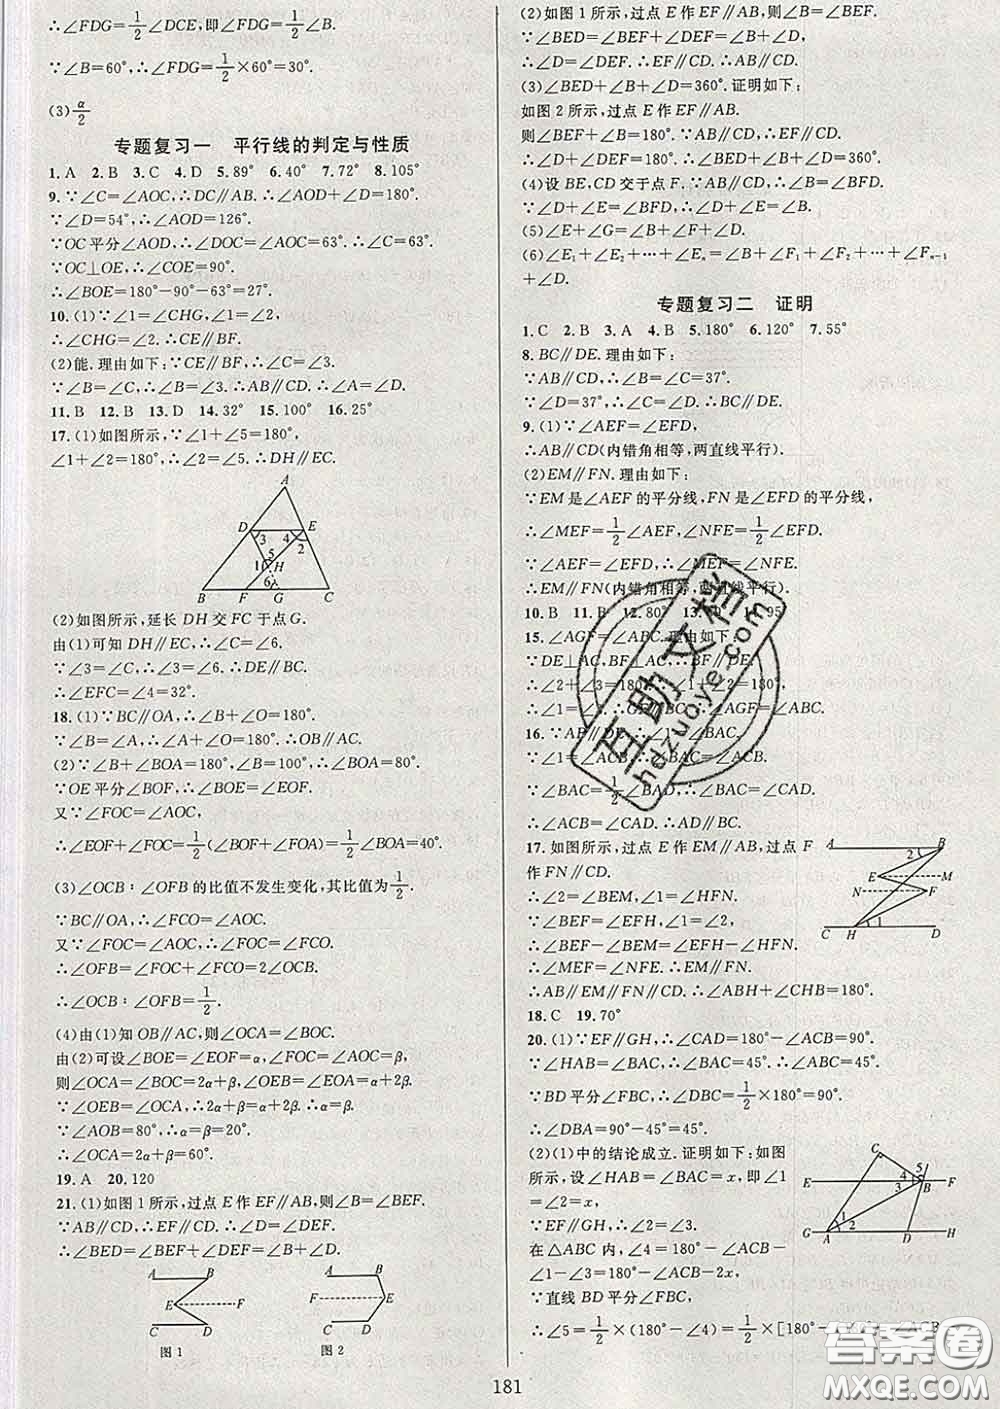 ∴∠FDG=1/2∠DCE,即∠FDG=1/2∠B.
∵∠B=60°,∴∠FDG=1/2×60°=30°.
(3)α/2
专题复习一 平行线的判定与性质
1.A 2.B 3.C 4.D 5.89° 6.40° 7.72° 8.105°
9.∵∠C=∠AOC,∴DC∥AB.∴∠D+∠AOD=180°.
∵∠D=54°,∴∠AOD=126°.
∵OC平分∠AOD,∴∠DOC=∠AOC=63°.
∵OC⊥OE,∴∠COE=90°.
∴∠BOE=180°-90°-63°=27°.
10.(1)∵∠1=∠CHG,∠1=∠2,
∴∠CHG=∠2.∴CE∥BF.
(2)能.理由如下:∵CE∥BF,∴∠C=∠3.
∵∠B=∠C,∴∠B=∠3.∴AB∥CD.∴∠A=∠D.
11.B 12.B 13.D 14.32° 15.100° 16.25°
17.(1)如图所示,∵∠1+∠5=180°,
∠1+∠2=180°,∴∠2=∠5.∴DH∥EC.
A
D E
3 4 2
5
1 H
6
B F G C
(2)如图所示,延长DH交FC于点G.
由(1)可知DH∥EC,∴∠6=∠C.
∵∠3=∠C,∴∠3=∠6.∴DE∥BC.
∴∠EFC=∠4=32°.
18.(1)∵BC∥OA,∴∠B+∠O=180°.
∵∠B=∠A,∴∠A+∠O=180°.∴OB∥AC.
(2)∵∠B+∠BOA=180°,∠B=100°,∴∠BOA=80°.
∵OE平分∠BOF,∴∠BOE=∠EOF.
又∵∠FOC=∠AOC,
∴∠EOF+∠FOC=1/2(∠BOF+∠FOA)=1/2∠BOA=40°.
(3)∠OCB∶∠OFB的比值不发生变化,其比值为1/2.
∵BC∥OA,∴∠FCO=∠AOC.
又∵∠FOC=∠AOC,∴∠FOC=∠FCO.
∴∠OFB=∠FOC+∠FCO=2∠OCB.
∴∠OCB∶∠OFB=1/2.
(4)由(1)知OB∥AC,则∠OCA=∠BOC.
由(2)可设∠BOE=∠EOF=α,∠FOC=∠AOC=β,
则∠OCA=∠BOC=2α+β,∠OEB=∠EOA=α+2β.
∵∠OEB=∠OCA,∴2α+β=α+2β.∴α=β.
∵∠AOB=80°,∴α=β=20°.
∴∠OCA=2α+β=60°.
19.A 20.120
21.(1)如图1所示,过点E作EF∥AB,则∠B=∠BEF.
∵AB∥CD,∴EF∥CD.∴∠D=∠DEF.
∴∠BED=∠BEF+∠DEF=∠B+∠D.
A B
E F
C D
图1
A B
F E
C D
图2
(2)如图1所示,过点E作EF∥AB,则∠B=∠BEF.
∵∠BED=∠BEF+∠DEF=∠B+∠D,
∴∠D=∠DEF.∴EF∥CD.∴AB∥CD.
(3)∠BED+∠B+∠D=360°.证明如下:
如图2所示,过点E作EF∥AB.
则∠B+∠BEF=180°.∵AB∥CD,∴EF∥CD.
∴∠D+∠DEF=180°.∴∠BED+∠B+∠D=360°.
(4)设BE,CD交于点F.∵AB∥CD,∴∠B=∠BFD.
∵∠D+∠E=∠BFD,∴∠D+∠E=∠B.
(5)∠E+∠G=∠B+∠F+∠D.
(6)∠E1+∠E2+…+∠En=∠B+∠F1+∠F2+…+∠Fn-1
+∠D.
专题复习二 证明
1.C 2.B 3.A 4.B 5.180° 6.120° 7.55°
8.BC∥DE.理由如下:
∵AB∥CD,∴∠B=∠C=37°.
∵∠D=37°,∴∠C=∠D.∴BC∥DE.
9.(1)∵∠AEF=∠EFD,
∴AB∥CD(内错角相等,两直线平行).
(2)EM∥FN.理由如下:
∵EM是∠AEF的平分线,FN是∠EFD的平分线,
∴∠MEF=1/2∠AEF,∠NFE=1/2∠EFD.
∵∠AEF=∠EFD,∴∠MEF=∠NFE.
∴EM∥FN(内错角相等,两直线平行).
10.B 11.B 12.80° 13. 95°
15.∠AGF=∠ABC.理由如下:
∵DE⊥AC,BF⊥AC,∴BF∥DE.
∴∠2+∠3=180°.∵∠1+∠2=180°,
∴∠1=∠3.∴GF∥BC.∴∠AGF=∠ABC.
16.∵AB∥DE,∴∠1=∠BAC.
∵∠1=∠ACB,∴∠BAC=∠ACB.
∵∠BAC=1/2∠BAD,∴∠BAC=∠CAD.
∴∠ACB=∠CAD.∴AD∥BC.
17.如图所示,过点E作EM∥AB,过点F
作FN∥CD.
∴∠2=∠BEM,∠1=∠HFN.
∵∠BEF=∠EFH,∠1=∠2,
∴∠BEF-∠BEM=∠EFH-∠HFN.
∴∠MEF=∠NFE.∴EM∥FN.
∴AB∥EM∥FN∥CD.∴∠ABH+∠CHB=180°.
A B
2
E M
N F
1
C H D
18.C 19.70°
20.(1)∵EF∥GH,∴∠CAD=180°-∠ACB=90°.
∵∠HAB=∠BAC,∴∠BAC=45°.∴∠ABC=45°.
∵BD平分∠FBC,∴∠DBC=1/2×180°=90°.
∴∠DBA=90°-45°=45°.
(2)(1)中的结论成立.证明如下:如图
所示,设∠HAB=∠BAC=x,即∠1
=∠2=x,
∵EF∥GH,∴∠2=∠3.
在△ABC内,∠4=180°-∠ACB-
∠1-∠3=180°-∠ACB-2x,
∵直线BD平分∠FBC,
∴∠5=1/2×(180°-∠4)=1/2×[180°-
C
5
4
E 3 B F
1
2
G A D H
181
互助文档
hdzuoye.com
答案圈
MXQE.COM